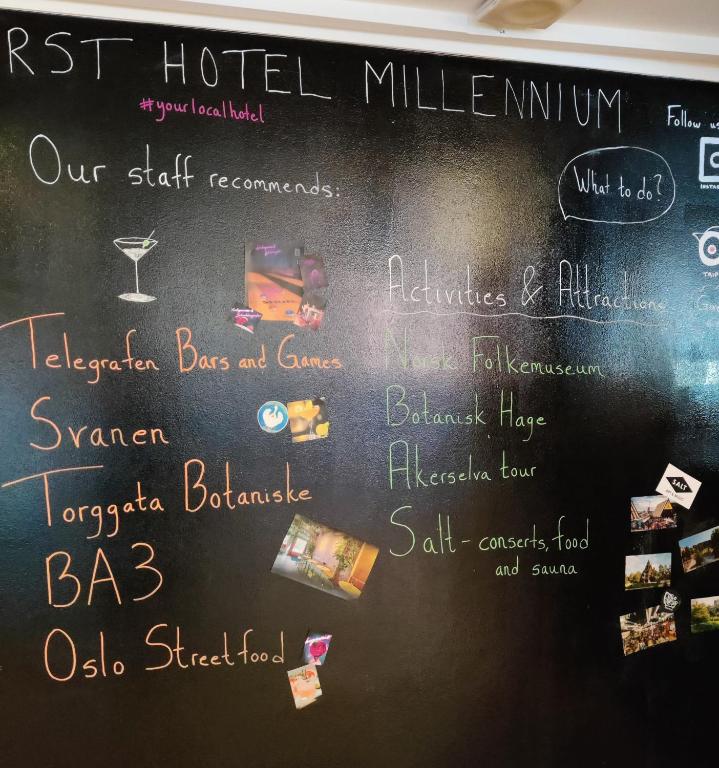 RST HOTEL MILLENNIUM
#yourlocalhotel
Follow us
Our staff recommends:
What to do?
INSTA
TRIP
Activities & Attractions
Telegrafen Bars and Games
Norsk Folkemuseum
Svanen
Botanisk Hage
Torggata Botaniske
Akerselva tour
SALT
BA3
Salt - conserts, food
and sauna
Oslo Streetfood